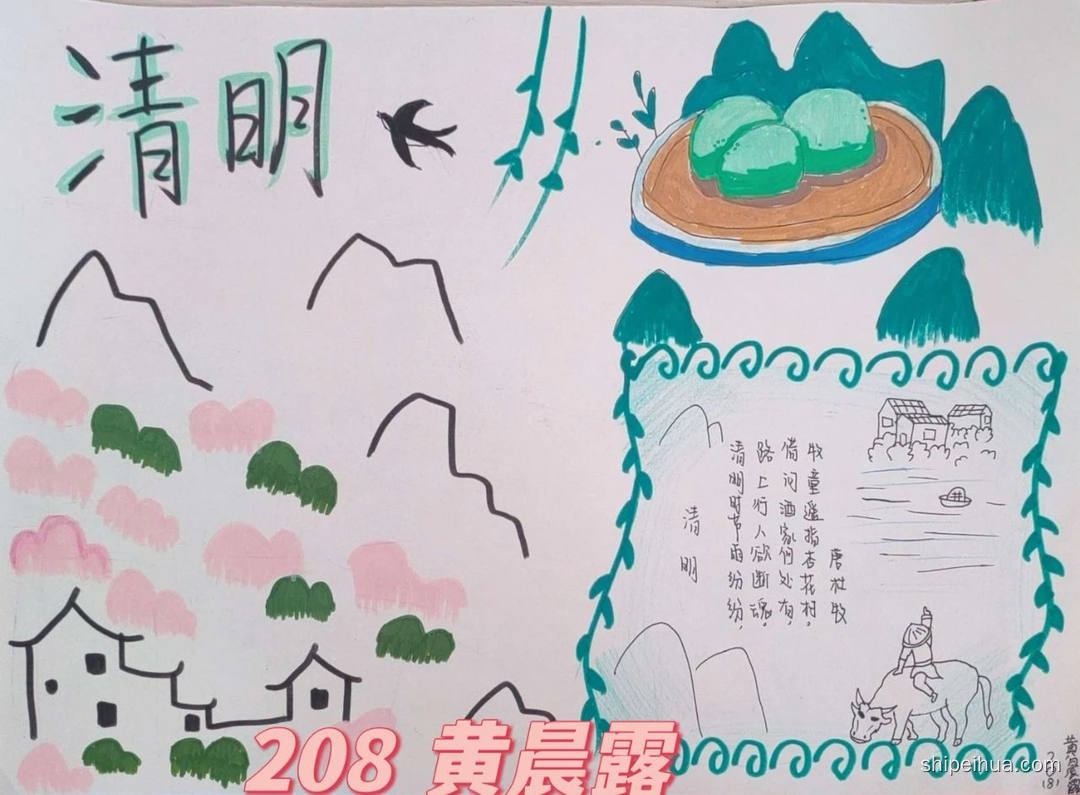 清明
清明
清明时节雨纷纷，
路上行人欲断魂。
借问酒家何处有，
牧童遥指杏花村。
唐杜牧
208 黄晨露
黄晨露
shipeihua.com